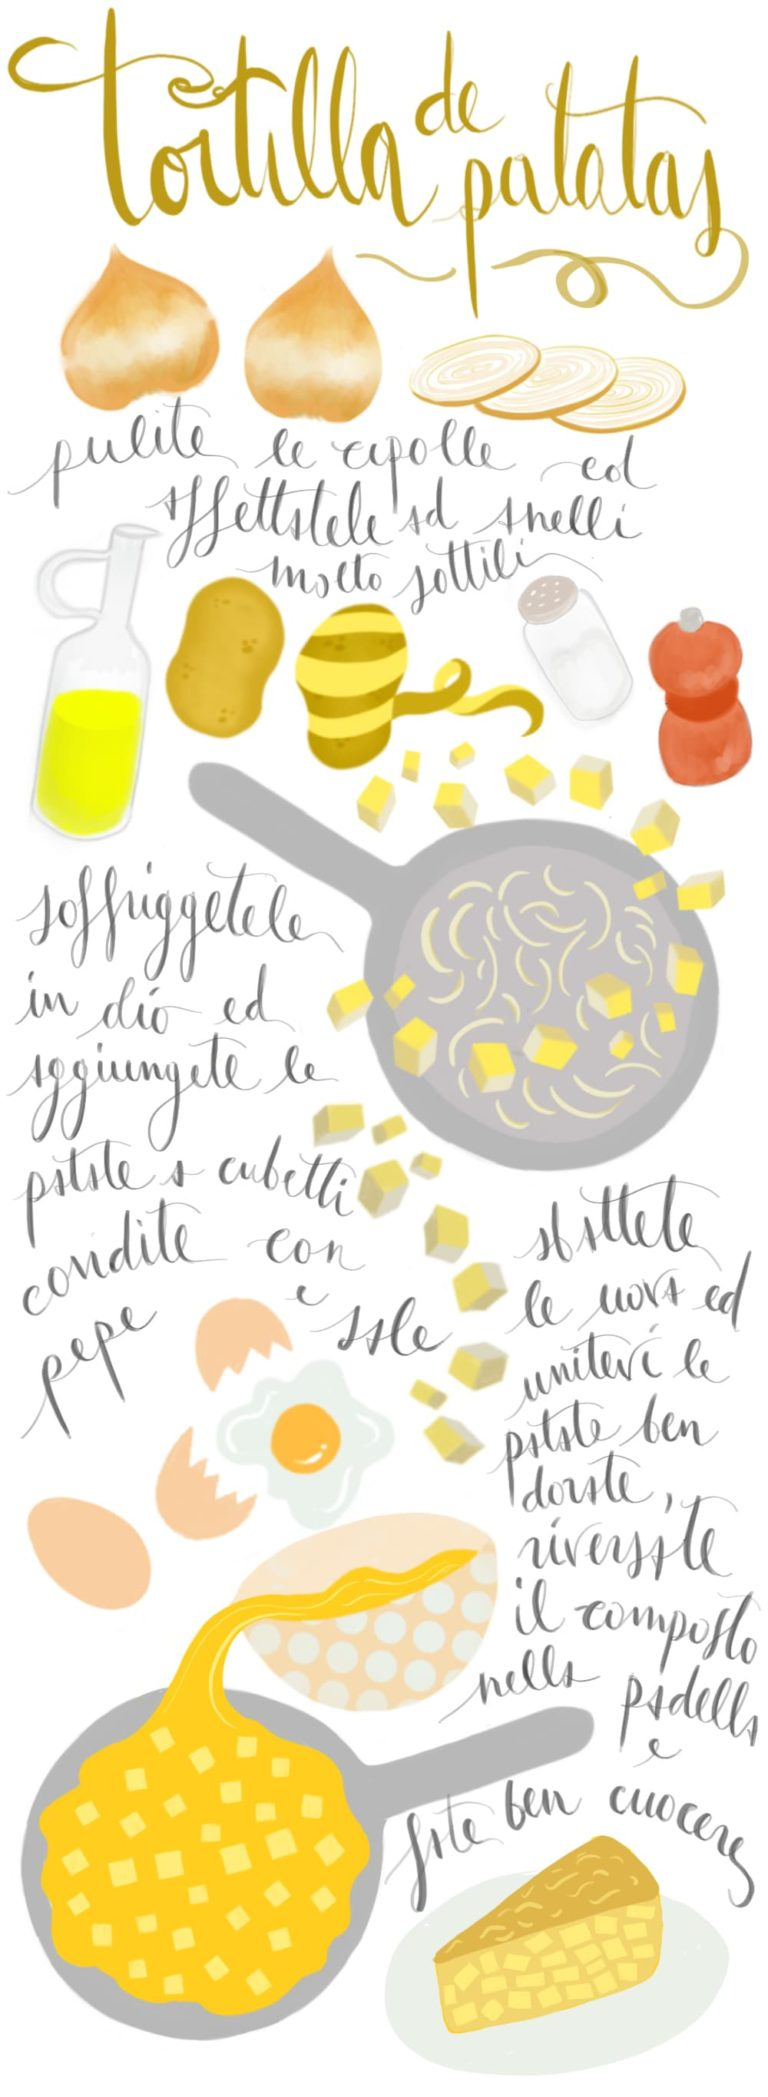 tortilla de patatas
pulite le cipolle ed
affettatele ad anelli
molto sottili
soffriggetele
in olio ed
aggiungete le
patate a cubetti
condite con
pepe e sale
sbattete
le uova ed
unitevi le
patate ben
dorate,
riversate
il composto
nella padella
e
fate ben cuocere